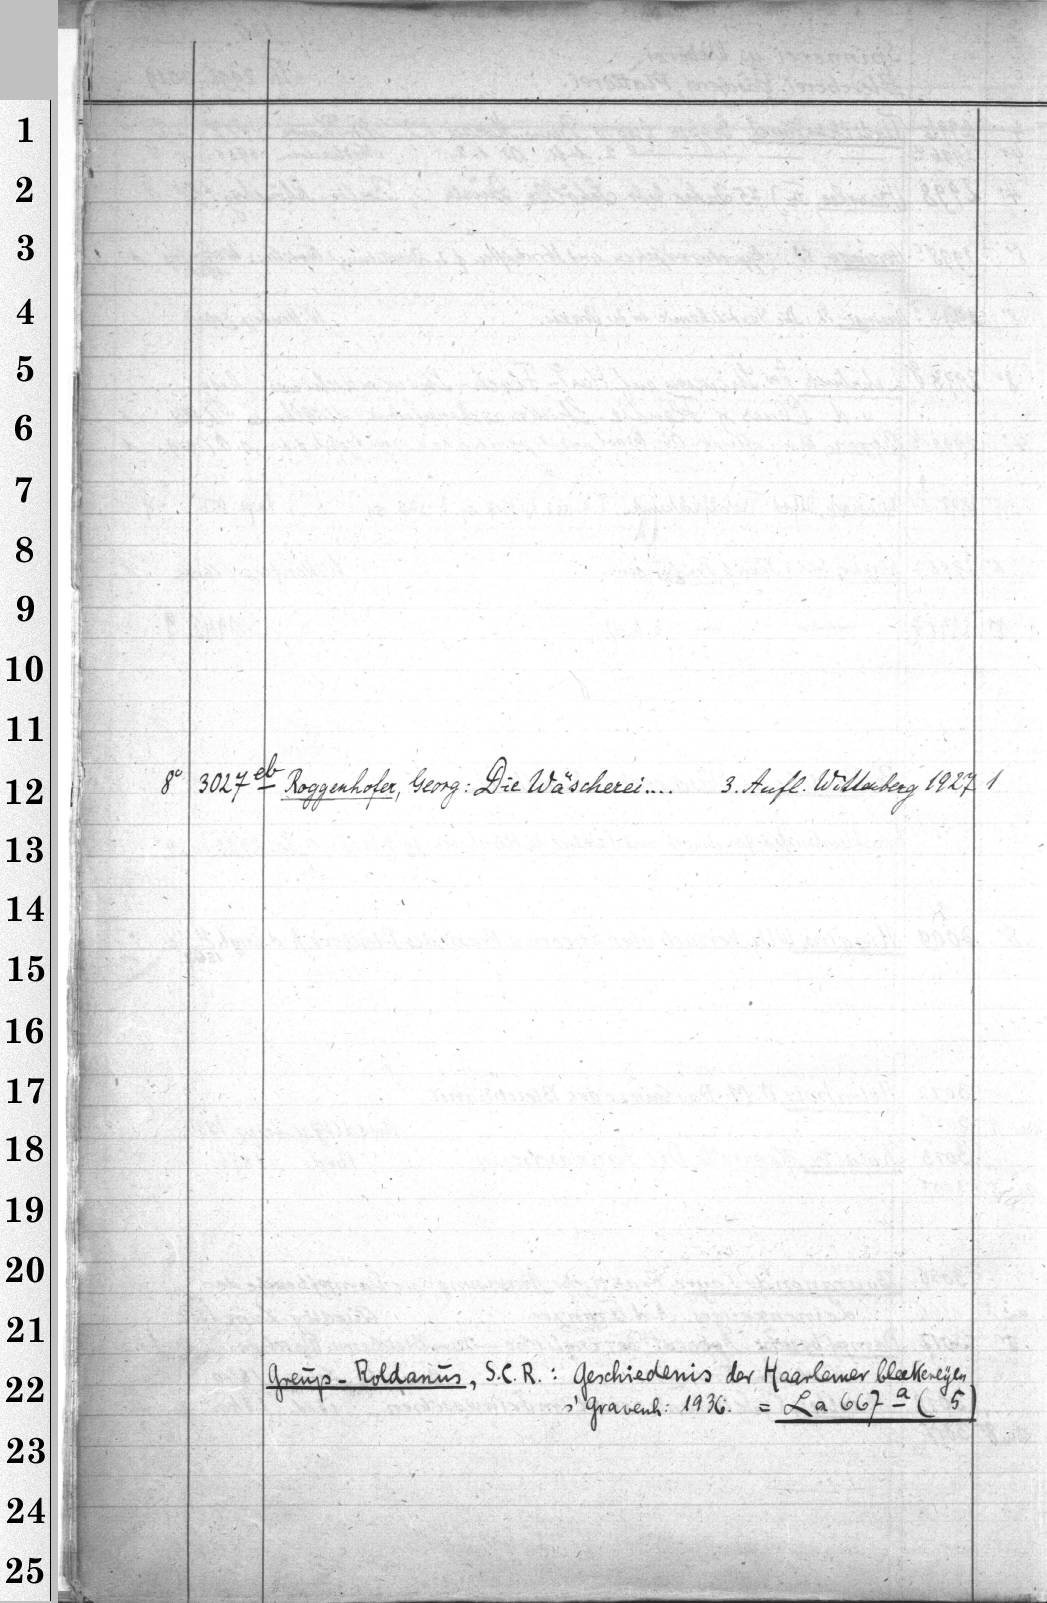 1
2
3
4
5
6
7
8
9
10
11
8° 3027 eb Roggenhofer, Georg: Die Wäscherei.... 3. Aufl. Wittenberg 1927 1
12
13
14
15
16
17
18
19
20
21
Greup-Roldanus, S.C.R.: Geschiedenis der Haarlemer bleekerijen
22
s'Gravenh: 1936. = La 667 a (5)
23
24
25